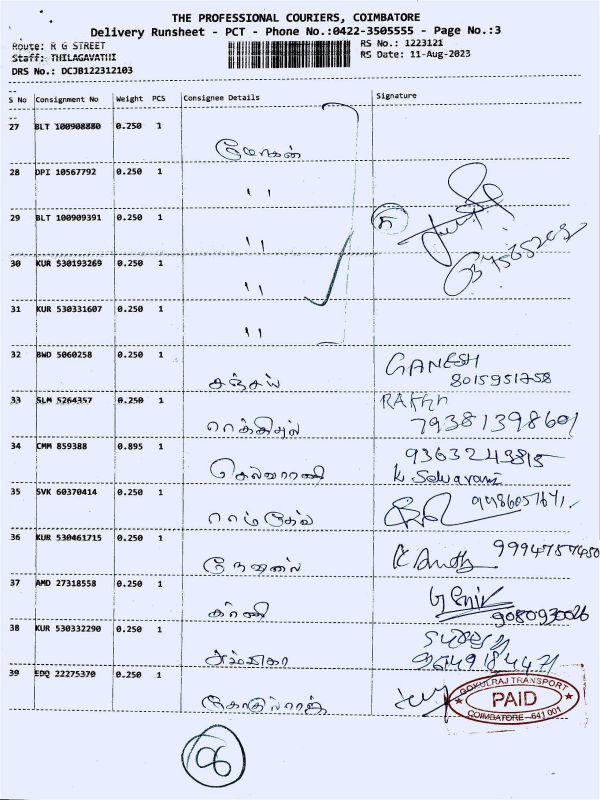 THE PROFESSIONAL COURIERS, COIMBATORE
Delivery Runsheet - PCT - Phone No.:0422-3505555 - Page No.:3
Route: R G STREET
RS No.: 1223121
Staff: THILAGAVATHI
RS Date: 11-Aug-2023
DRS No.: DCJB122312103
S No Consignment No Weight PCS Consignee Details Signature
27 BLT 100908880 0.250 1
மோகன்
28 DPI 10567792 0.250 1
''
29 BLT 100909391 0.250 1
''
30 KUR 530193269 0.250 1
''
31 KUR 530331607 0.250 1
''
32 BWD 5060258 0.250 1
சஞ்சய் GANESH
8015951758
33 SLM 5264357 0.250 1
79381398601
34 CMM 859388 0.895 1
செல்வராணி 9363243815
K Selvarani
35 SVK 60370414 0.250 1
ராம்தேவ்
36 KUR 530461715 0.250 1
9994757450
37 AMD 27318558 0.250 1
9080930026
38 KUR 530332290 0.250 1
39 EDQ 22275370 0.250 1
கோகுல்ராஜ்
GOKULRAJ TRANSPORT
PAID
COIMBATORE - 641 001
06